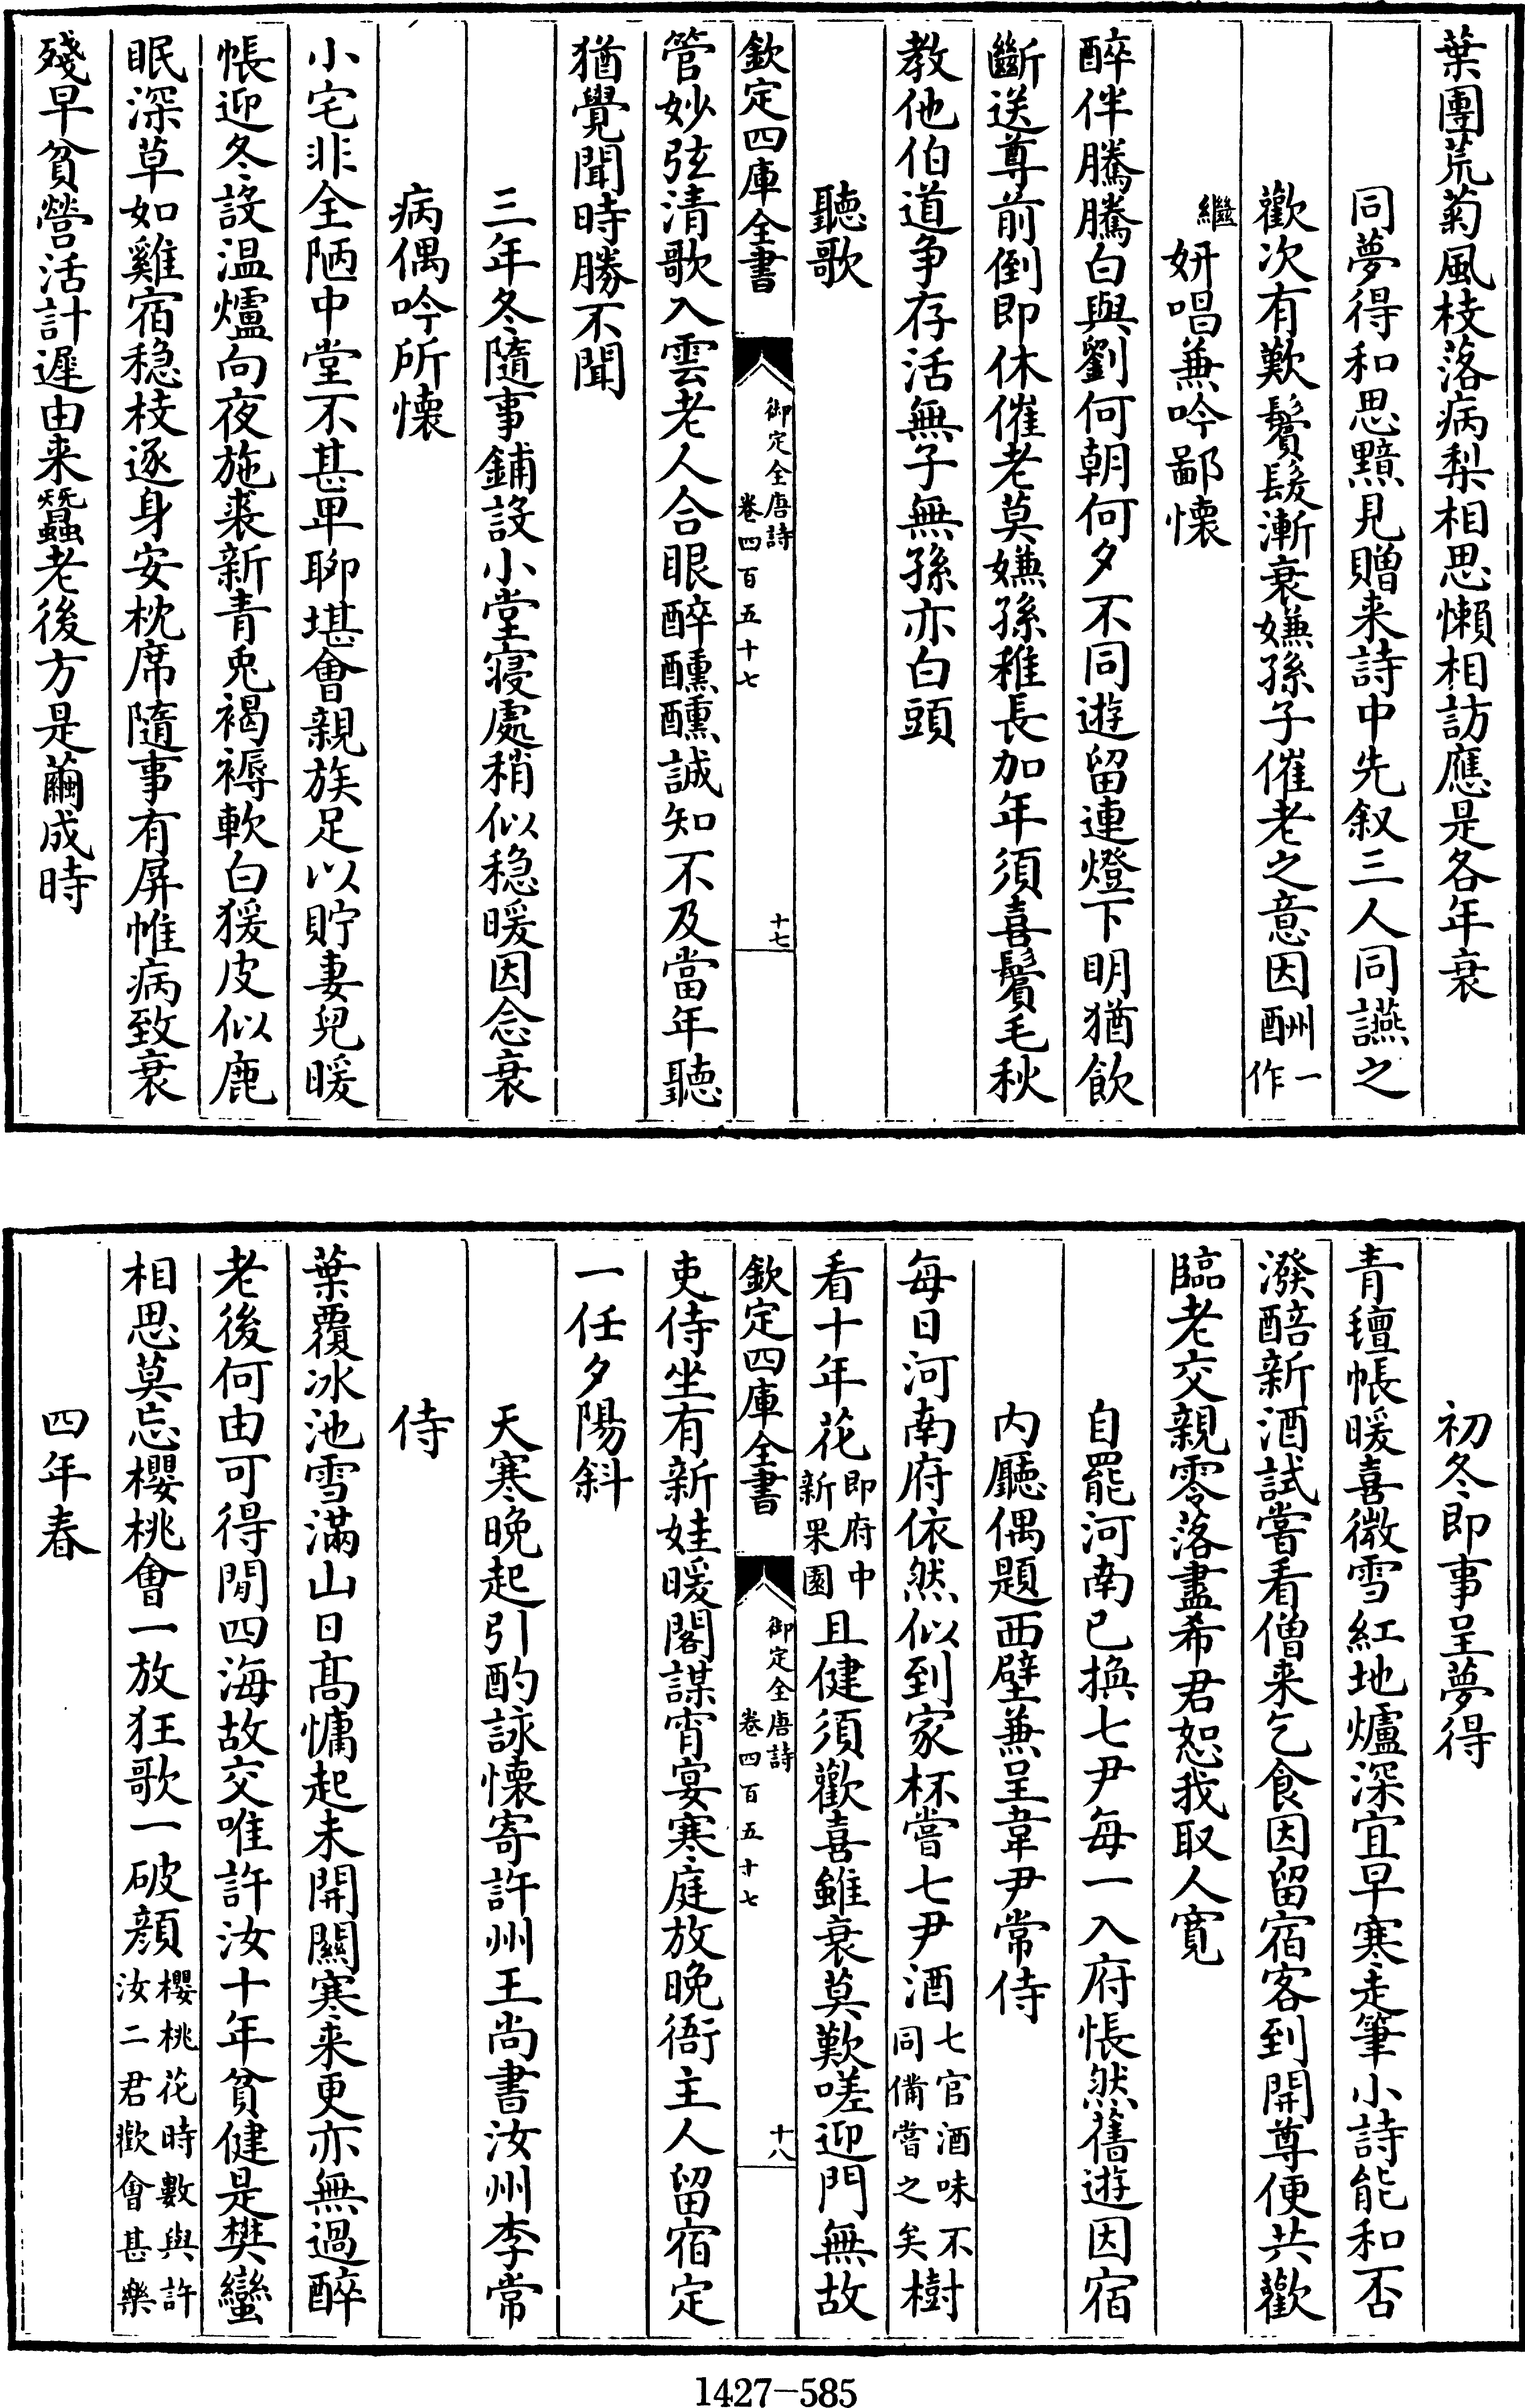 葉團荒菊風枝落病梨相思懶相訪應是各年衰
同夢得和思黯見贈来詩中先叙三人同讌之
歡次有歎鬢髮漸衰嫌孫子催老之意因酬一作
繼妍唱兼吟鄙懷
醉伴騰騰白與劉何朝何夕不同遊留連燈下明猶飲
斷送尊前倒即休催老莫嫌孫稚長加年須喜鬢毛秋
教他伯道争存活無子無孫亦白頭
聽歌
欽定四庫全書
御定全唐詩
卷四百五十七
十七
管妙弦清歌入雲老人合眼醉醺醺誠知不及當年聽
猶覺聞時勝不聞
三年冬隨事鋪設小堂寝處稍似穏暖因念衰
病偶吟所懷
小宅非全陋中堂不甚卑聊堪會親族足以貯妻兒暖
帳迎冬設温爐向夜施裘新青兎褐褥軟白猨皮似鹿
眠深草如雞宿穏枝逐身安枕席隨事有屏帷病致衰
殘早貧營活計遲由来蠶老後方是繭成時
初冬即事呈夢得
青氊帳暖喜微雪紅地爐深宜早寒走筆小詩能和否
潑醅新酒試嘗看僧来乞食因留宿客到開尊便共歡
臨老交親零落盡希君恕我取人寛
自罷河南已換七尹每一入府悵然舊遊因宿
内廳偶題西壁兼呈韋尹常侍
每日河南府依然似到家杯嘗七尹酒七官酒味不同備嘗之矣樹
看十年花即府中新果園且健須歡喜雖衰莫歎嗟迎門無故
欽定四庫全書
御定全唐詩
卷四百五十七
十八
吏侍坐有新娃暖閣謀宵宴寒庭放晚衙主人留宿定
一任夕陽斜
天寒晚起引酌詠懷寄許州王尚書汝州李常
侍
葉覆冰池雪滿山日髙慵起未開關寒来更亦無過醉
老後何由可得閒四海故交唯許汝十年貧健是樊蠻
相思莫忘櫻桃會一放狂歌一破顔櫻桃花時數與許汝二君歡會甚樂
四年春
1427-585